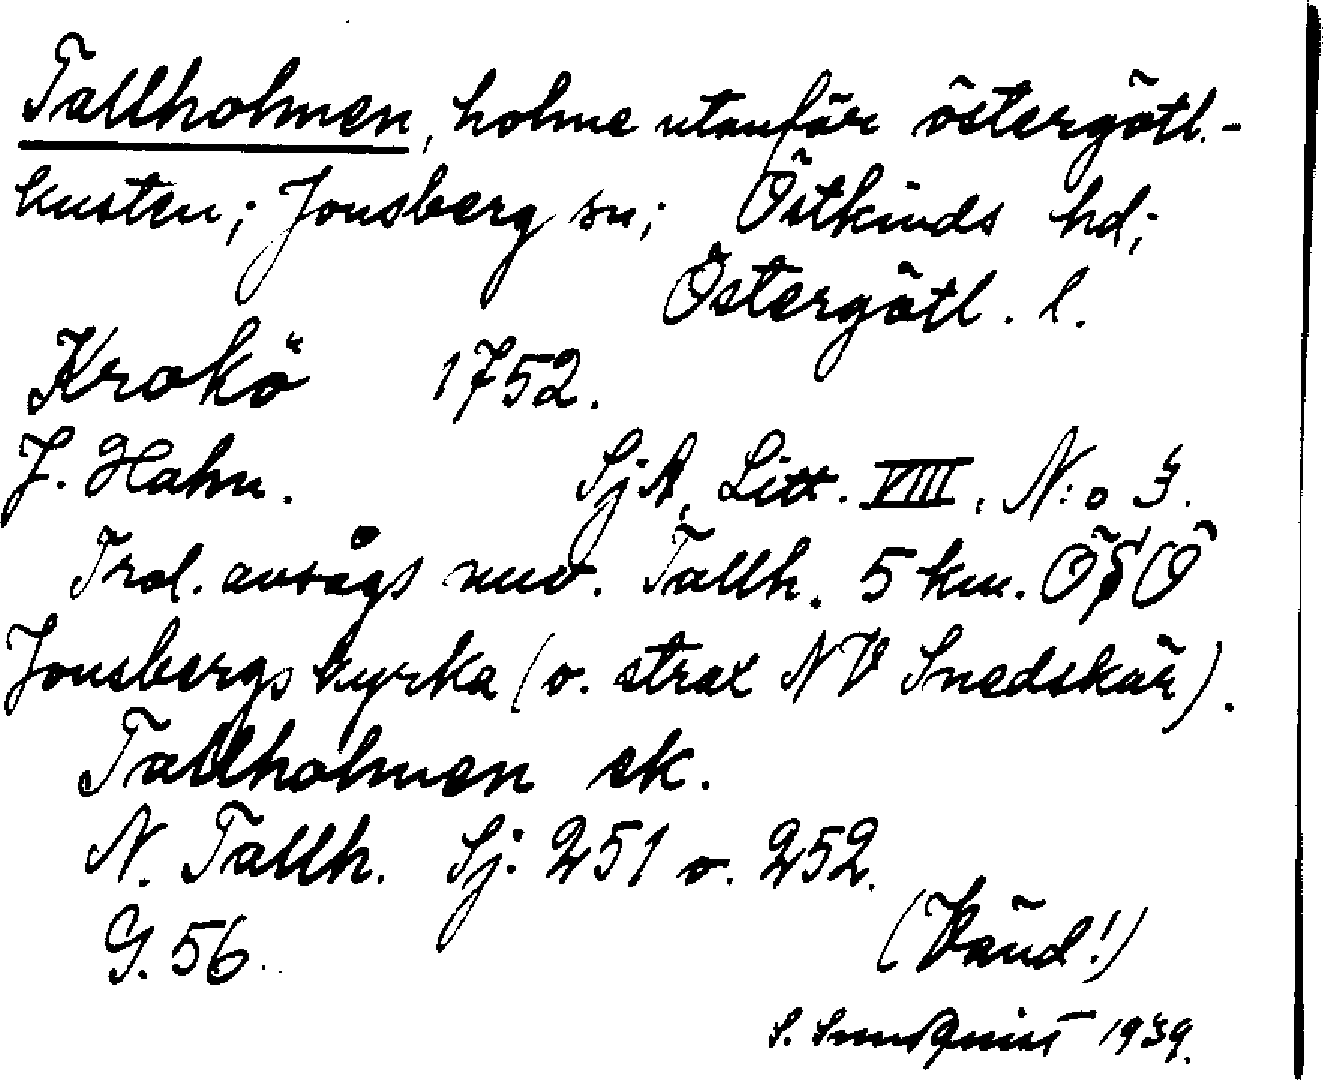 Tallholmen, holme utanför östergötl.-
kusten; Jonsberg sn; Östkinds hd;
Östergötl. l.
Krokö 1752.
J. Hahn. SjA, Litt. VIII, N:o 3.
Trol. avsågs nuv. Tallh. 5 km. ÖSÖ
Jonsbergs kyrka (o. strax NV Snedskär).
Tallholmen ek.
N. Tallh. Sj. 251 o. 252.
G. 56.
(Vänd!)
S. Sundquist 1939.